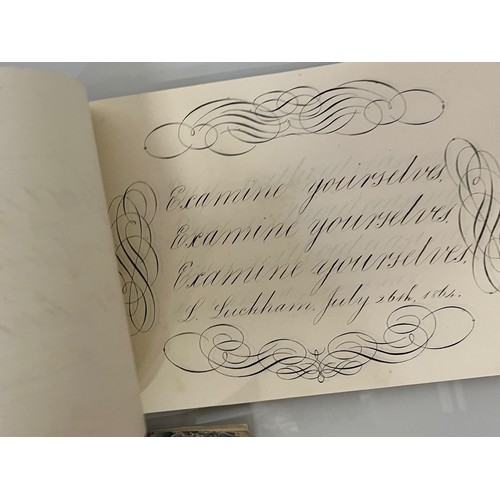 Examine yourselves,
Examine yourselves,
Examine yourselves,
L. Luckham, July 26th, 1864.